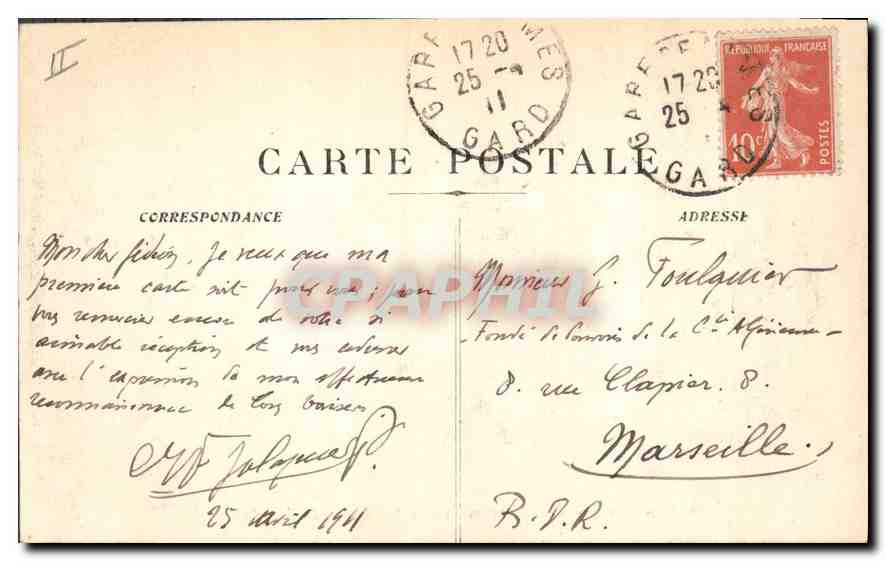 II
GARE MES
17 20
25 - 4
11
GARD
GARE DE
17 20
25 4
GARD
REPUBLIQUE FRANÇAISE
10c
POSTES
CARTE POSTALE
CORRESPONDANCE
ADRESSE
CPAPHIL
Mon cher Gédéon, Je veux que ma
première carte soit pour vous ; pour
vous remercier encore de votre si
aimable réception et vous adresser
avec l'expression de mon affectueuse
reconnaissance de bons baisers.
25 avril 1911
Monsieur G. Foulquier
Fondé de pouvoirs de la Cie Algérienne
8. rue Clapier. 8.
Marseille.
B.D.R.